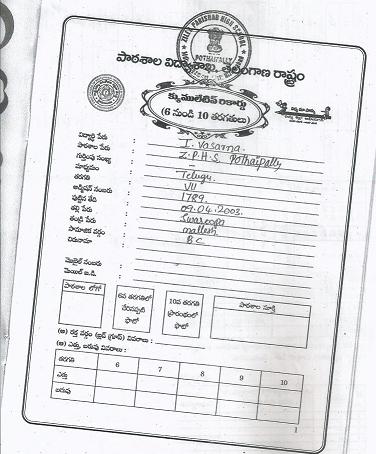 ZILLA PARISHAD HIGH SCHOOL
POTHAIPALLY
పాఠశాల విద్యాశాఖ, తెలంగాణ రాష్ట్రం
క్యుములేటివ్ రికార్డు
(6 నుండి 10 తరగతులు)
విద్యార్థి పేరు : I. Vasanna
పాఠశాల పేరు : Z.P.H.S Pothaipally
గుర్తింపు సంఖ్య : –
మాధ్యమం : Telugu
తరగతి : VII
అడ్మిషన్ నంబరు : 1789
పుట్టిన తేది : 09.04.2003.
తల్లి పేరు : Swaroopa
తండ్రి పేరు : mallesh
సామాజిక వర్గం : B.C
చిరునామా :
మొబైల్ నంబరు :
మెయిల్ ఐ.డి. :
పాఠశాల లోగో
6వ తరగతిలో చేరినప్పటి ఫొటో
10వ తరగతి ప్రారంభంలో ఫొటో
పాఠశాల సూక్తి
(అ) రక్త వర్గం (బ్లడ్ గ్రూప్) వివరాలు :
(ఆ) ఎత్తు, బరువు వివరాలు :
తరగతి 6 7 8 9 10
ఎత్తు
బరువు
1